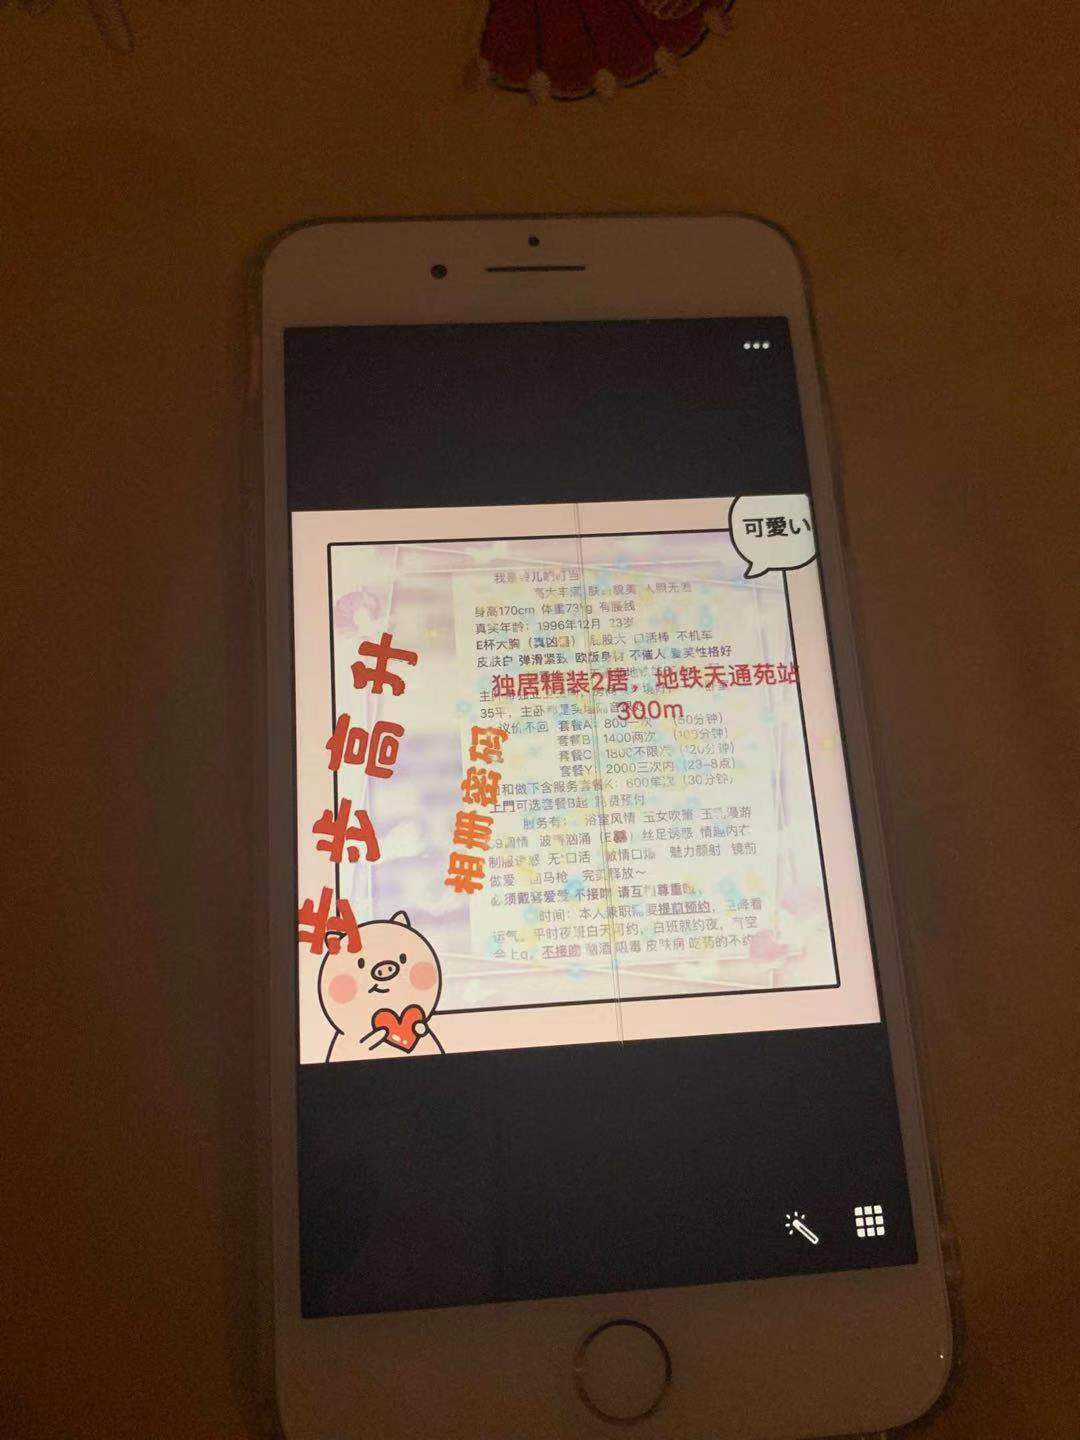 可愛い
我是
高大丰满 肤 貌美 人照无差
身高170cm 体重73kg 有腰线
真实年龄：1996年12月 23岁
E杯大胸（真凶 ） 屁股大 口活棒 不机车
皮肤白 弹滑紧致 欧版身 不催人 爱笑性格好
独居精装2居，地铁天通苑站
300m
35平，主卧
议价不回 套餐A：800一次 （60分钟）
套餐B：1400两次 （100分钟）
套餐C：1800不限次（120分钟）
套餐Y：2000三次内（23-8点）
和做下含服务套餐K：600单次（30分钟）
上門可选套餐B起 路费预付
服务有： 浴室风情 玉女吹箫 漫游
69调情 波 汹涌（E ）丝足诱惑 情趣内衣
制服诱惑 无 口活 激情口爆 魅力颜射 镜前
做爱 回马枪 完美释放～
必须戴 不接吻 请互相尊重
时间：本人兼职需要提前预约，
运气。平时夜班白天可约，白班就约夜，
不接吻 酗酒 吸毒 皮肤病 吃药的不约
步步高升
相册密码